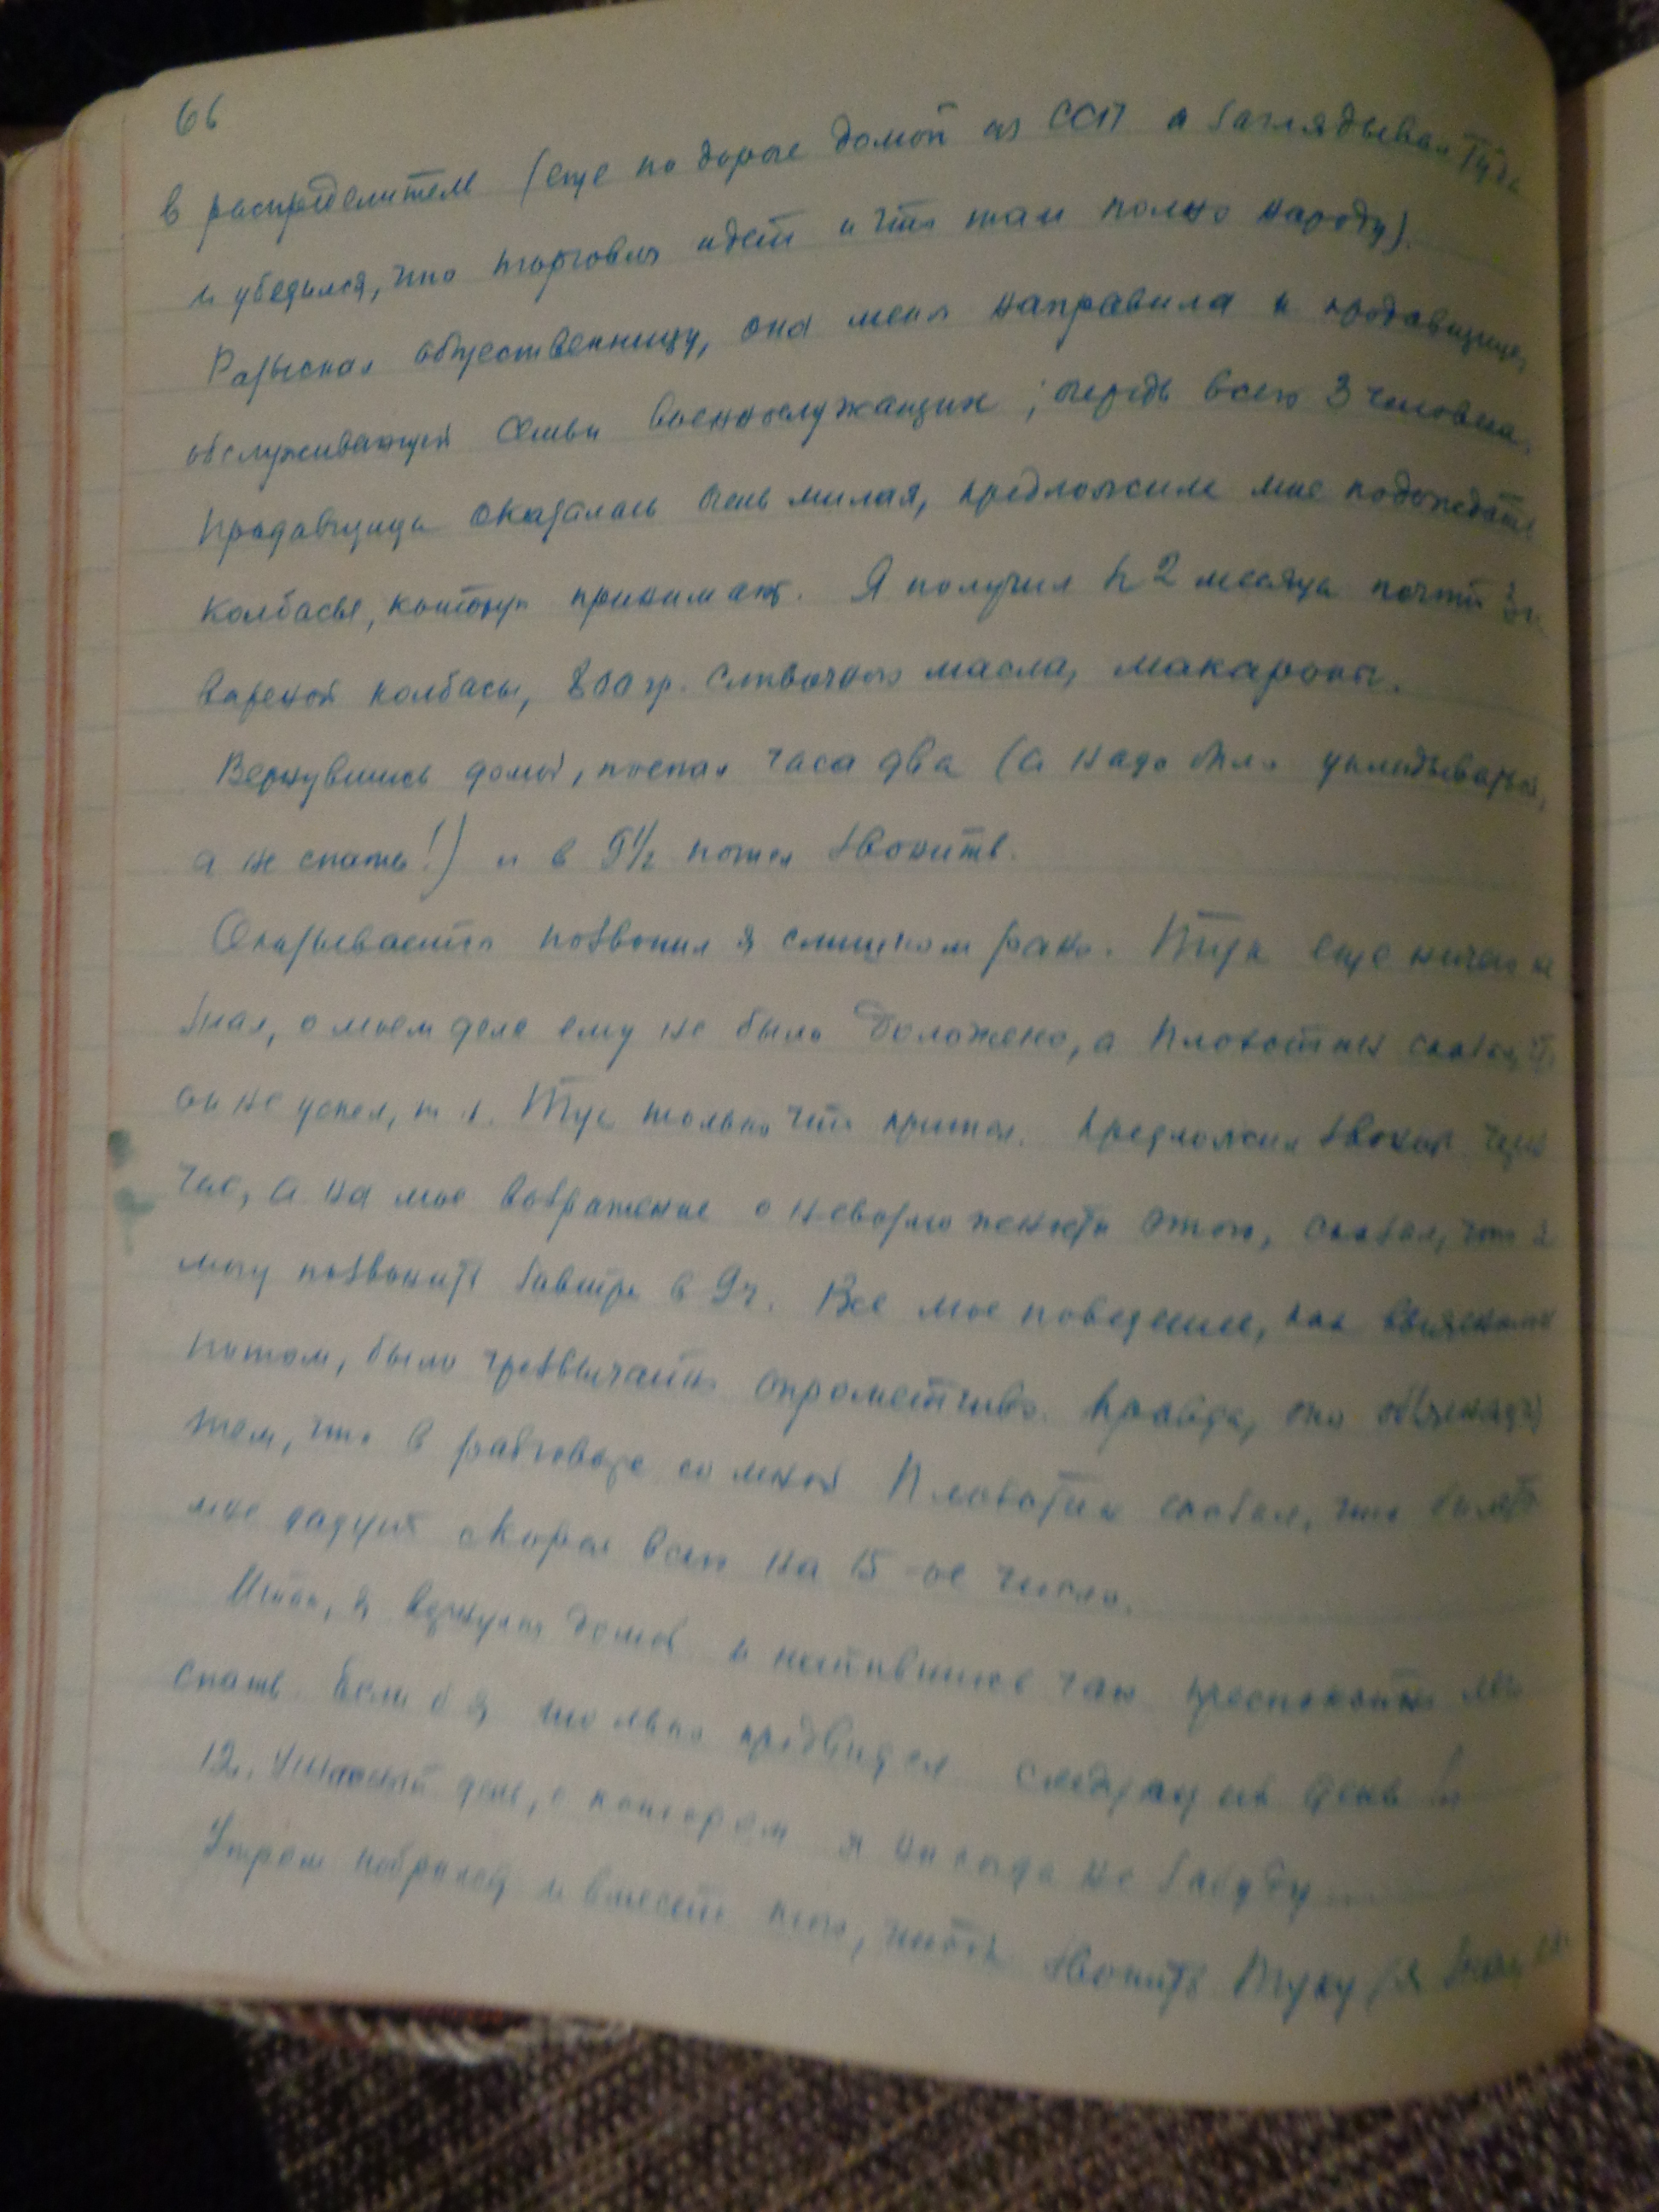 66
в распределитель (еще по дороге домой из ССП я заглядывал туда
и убедился, что торговля идет и что там полно народу).
Разыскал общественницу, она меня направила к продавщице,
обслуживающей семьи военнослужащих; очередь всего 3 человека.
Продавщица оказалась очень милая, предложила мне подождать
колбасы, которую принимают. Я получил за 2 месяца почти
вареной колбасы, 800 гр. сливочного масла, макароны.
Вернувшись домой, поспал часа два (а надо было укладываться,
а не спать!) и в 9 1/2 пошел звонить.
Оказывается позвонил я слишком рано. Тук еще ничего не
знал, о моем деле ему не было доложено, а Плоткин сказал, что
он не успел, т.к. Тук только что пришел. Предложил звонить через
час, а на мое возражение о невозможности этого, сказал, что я
могу позвонить завтра в 9 ч. Все мое поведение, как выяснилось
потом, было чрезвычайно опрометчиво. Правда, оно объяснялось
тем, что в разговоре со мной Плоткин сказал, что билет
мне дадут скорее всего на 15-ое число.
Итак, я вернулся домой и напившись чаю преспокойно лег
спать. Если б я только предвидел следующий день!
12. Ужасный день, о котором я никогда не забуду
Утром побрился и вместо того, чтобы звонить Туку (я знал, что